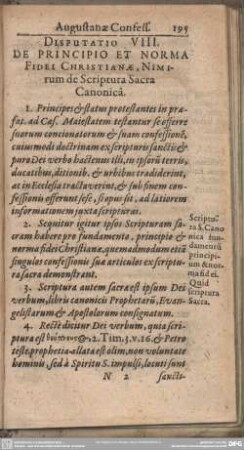 Augustanæ Confess. 195
DISPUTATIO VIII.
DE PRINCIPIO ET NORMA
FIDEI CHRISTIANÆ, NIMI-
rum de Scriptura Sacra
Canonicâ.
1. Principes & status protestantes in præ-
fat. ad Cæs. Maiestatem testantur se offerre
suorum concionatorum & suam confessionē,
cuiusmodi doctrinam ex scripturis sanctis &
puro Dei verbo hactenus illi, in ipsorū terris,
ducatibus, ditionib. & urbibus tradiderint,
ac in Ecclesia tractaverint, & sub finem con-
fessionis offerunt sese, si opus sit, ad latiorem
informationem juxta scripturas.
2. Sequitur igitur ipsos Scripturam sa-
cram habere pro fundamento, principio &
norma fidei Christianæ, quemadmodum etiā
singulos confessionis suæ articulos ex scriptu-
ra sacra demonstrant.
Scriptu-
ra S. Cano
nica fun-
damentū
principi-
um & nor-
ma fidei.
3. Scriptura autem sacra est ipsum Dei
verbum, libris canonicis Prophetarū, Evan-
gelistarum & Apostolorum consignatum.
Quid
scriptura
Sacra.
4. Rectè dicitur Dei verbum, quia scri-
ptura est 2. Tim. 3. v. 16. & Petro
teste prophetia allata est olim, non voluntate
hominis, sed à Spiritu S. impulsi, locuti sunt
N 2 sancti-